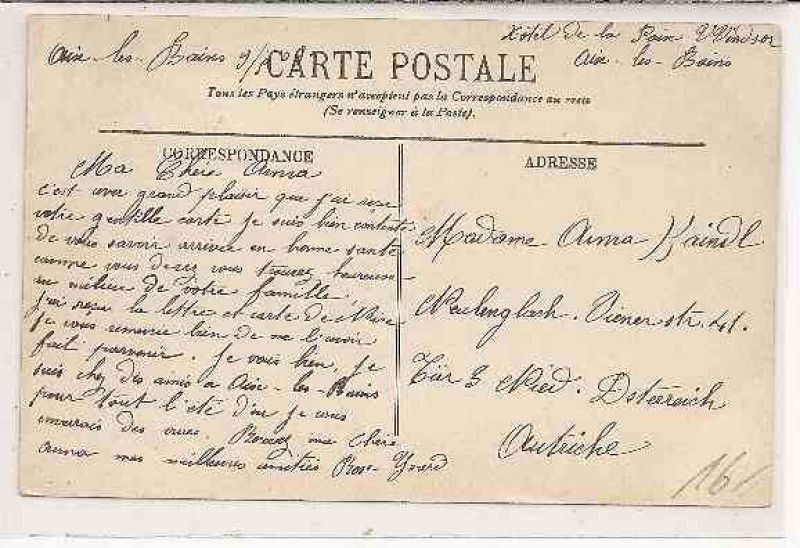 Aix-les-Bains 9/
Hôtel de la Paix Windsor
Aix-les-Bains
CARTE POSTALE
Tous les Pays étrangers n'acceptent pas la Correspondance au recto
(Se renseigner à la Poste).
CORRESPONDANCE
ADRESSE
Ma Chere Anna
c'est avec grand plaisir que j'ai reçu
votre gentille carte je suis bien contente
de vous savoir arrivée en bonne santé
comme vous devez vous trouver heureuse
au milieu de votre famille
j'ai reçu la lettre et carte de
je vous remercie bien de me l'avoir
fait parvenir. Je vais bien, je
suis chez des amis a Aix-les-Bains
pour tout l'eté d'ou je vous
enverrais des vues. Recevez ma chère
Anna mes meilleures amitiés Rose
Madame Anna Kaindl
Neulengbach. Viener str. 41.
Tür 3 Nied. Östereich
Autriche
16